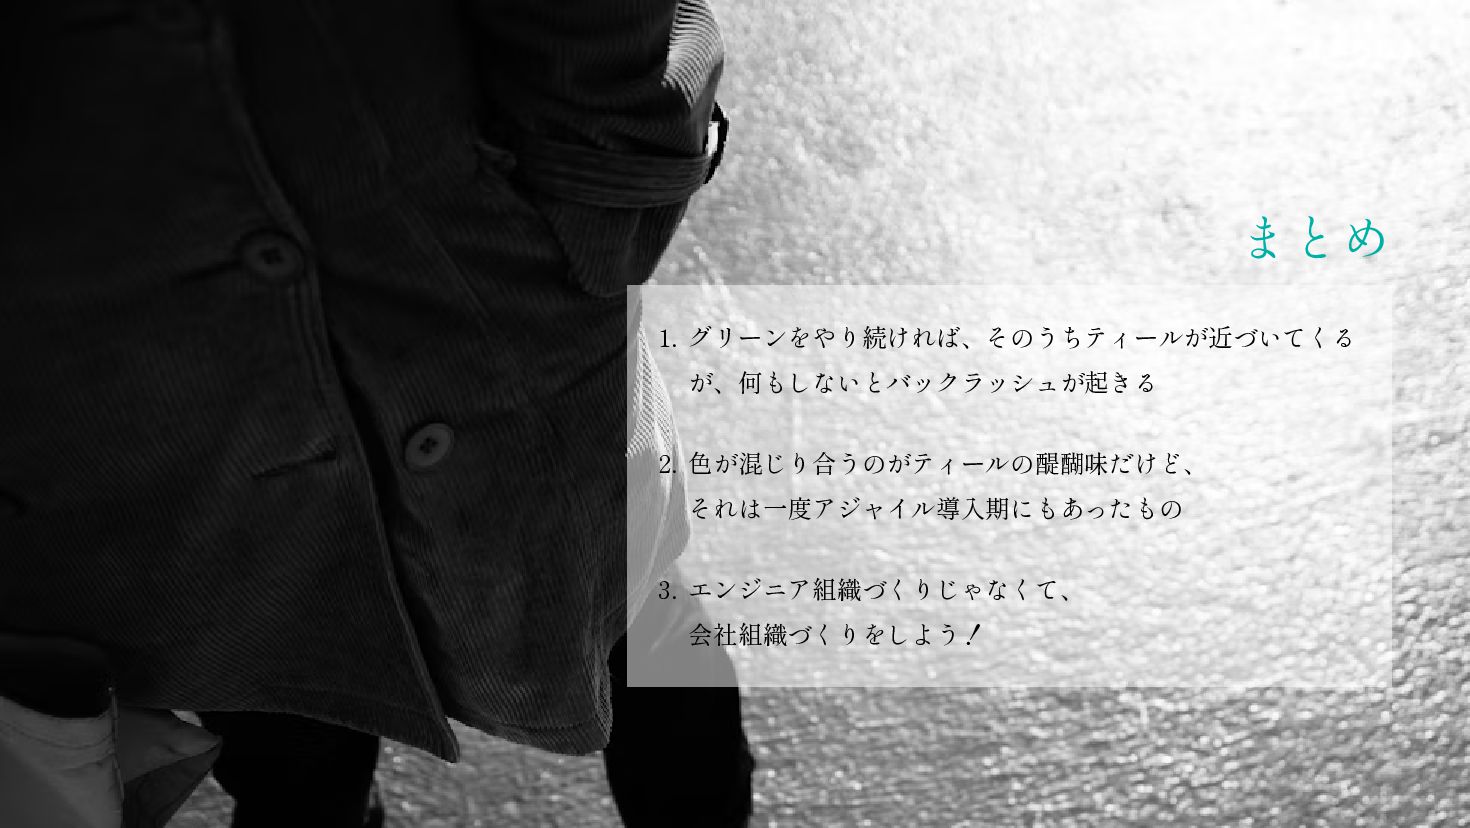 まとめ
1. グリーンをやり続ければ、そのうちティールが近づいてくる
が、何もしないとバックラッシュが起きる
2. 色が混じり合うのがティールの醍醐味だけど、
それは一度アジャイル導入期にもあったもの
3. エンジニア組織づくりじゃなくて、
会社組織づくりをしよう！